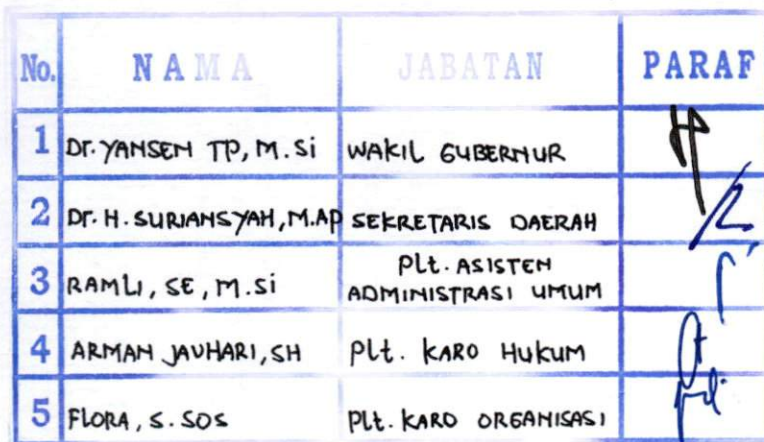 No. NAMA JABATAN PARAF
1 Dr. YANSEN TP, M. Si WAKIL GUBERNUR
2 Dr. H. SURIANSYAH, M.AP SEKRETARIS DAERAH
3 RAMLI, SE, M.Si Plt. ASISTEN
ADMINISTRASI UMUM
4 ARMAN JAUHARI, SH Plt. KARO HUKUM
5 FLORA, S. SOS Plt. KARO ORGANISASI